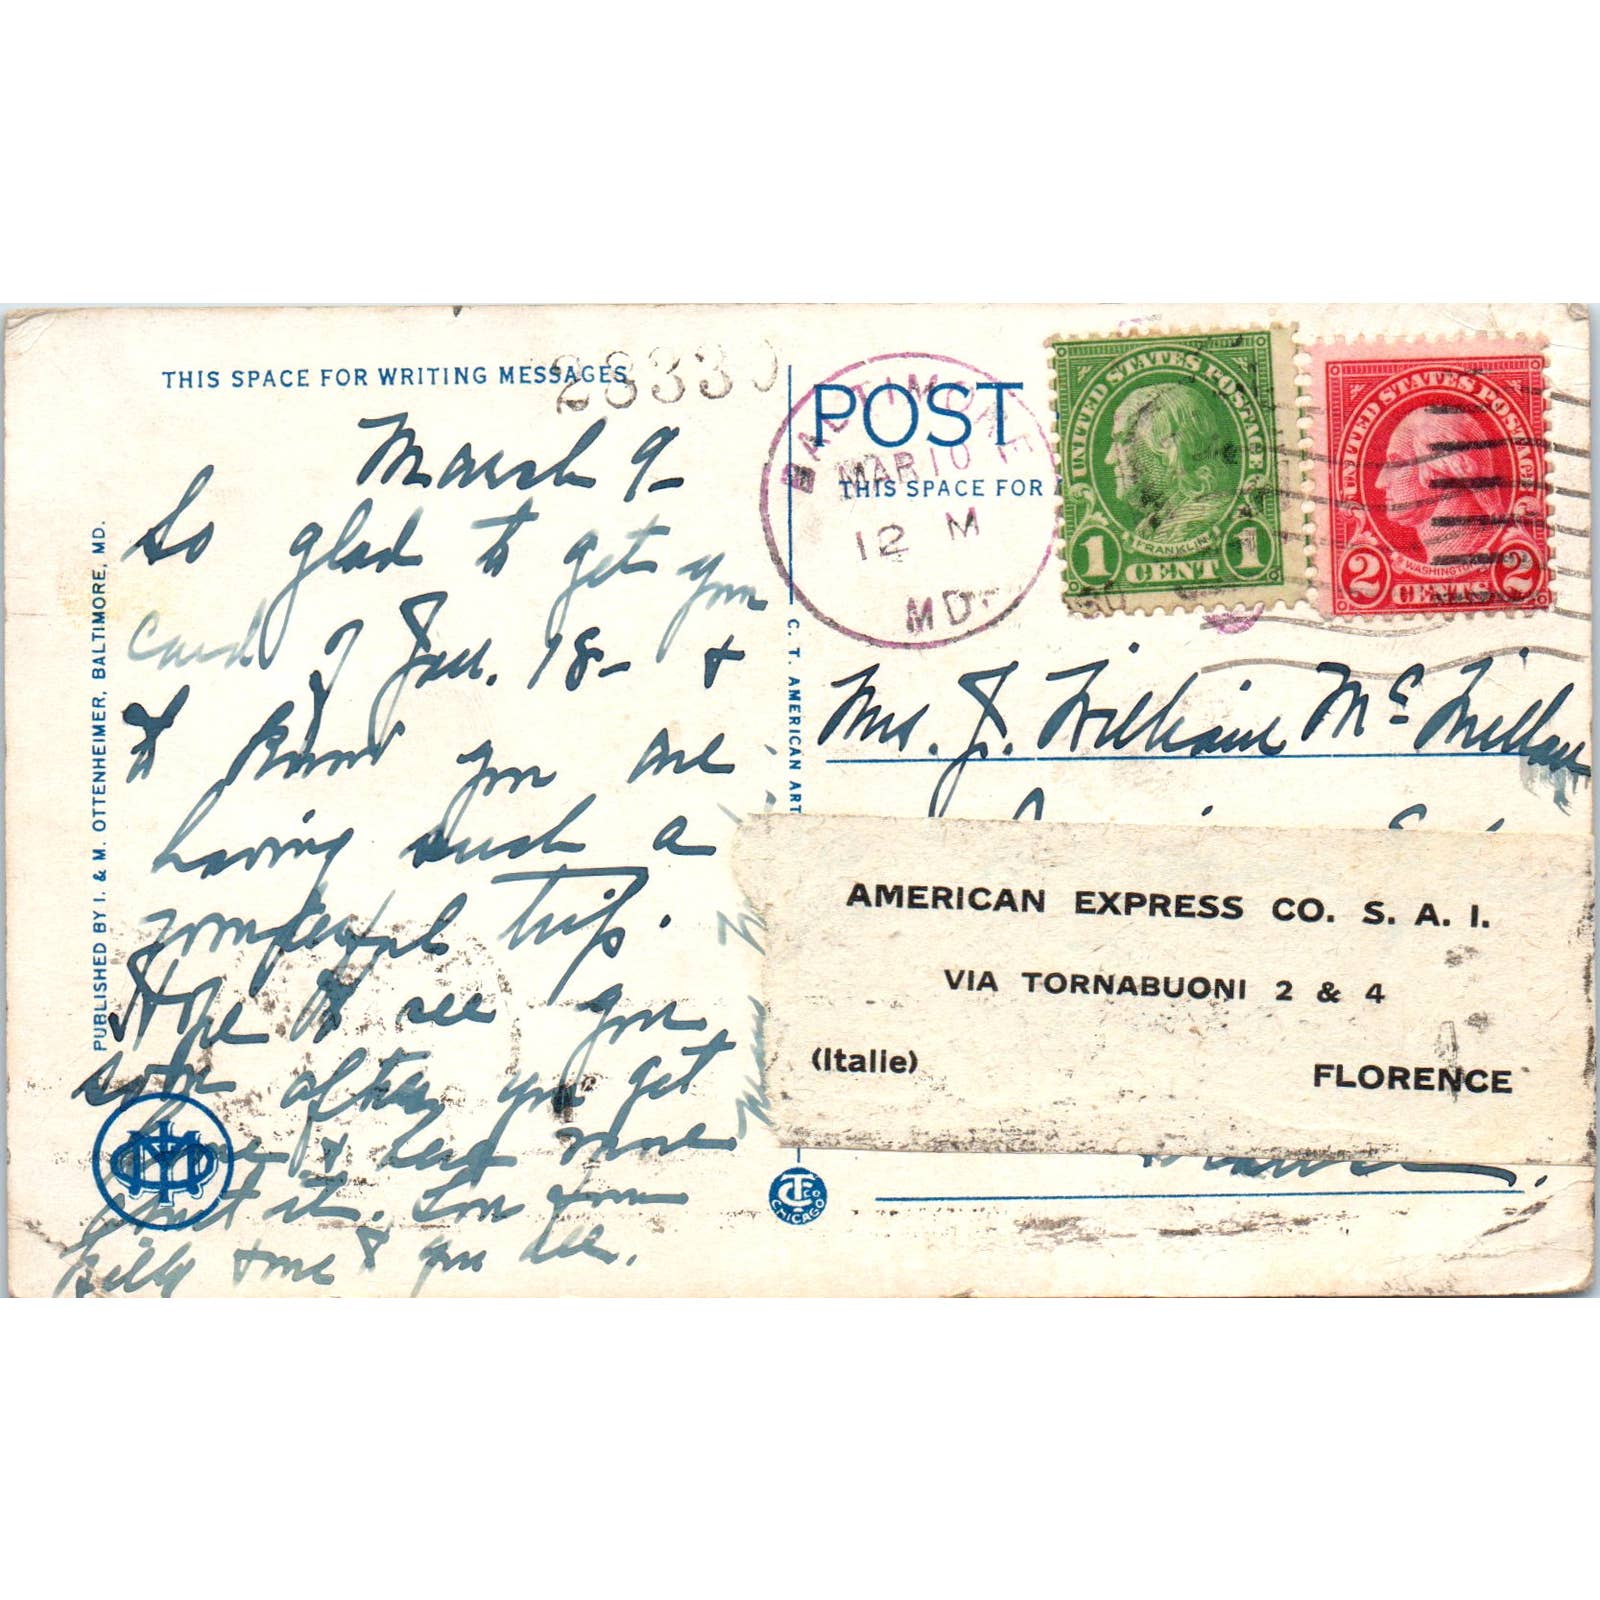 THIS SPACE FOR WRITING MESSAGES
28330
March 9-
So glad to get your
card of Jan. 18- &
to know you are
having such a
wonderful trip.
Hope to see you
soon after you get
home & hear more
about it. Love from
Billy & me to you all.
PUBLISHED BY I. & M. OTTENHEIMER, BALTIMORE, MD.
C. T. AMERICAN ART
POST
THIS SPACE FOR
BALTIMORE
MAR 10
12 M
MD-
UNITED STATES POSTAGE
FRANKLIN
1 CENT 1
UNITED STATES POSTAGE
WASHINGTON
2 CENTS 2
Mrs. J. William McMillan
AMERICAN EXPRESS CO. S. A. I.
VIA TORNABUONI 2 & 4
(Italie) FLORENCE
CTCo
CHICAGO